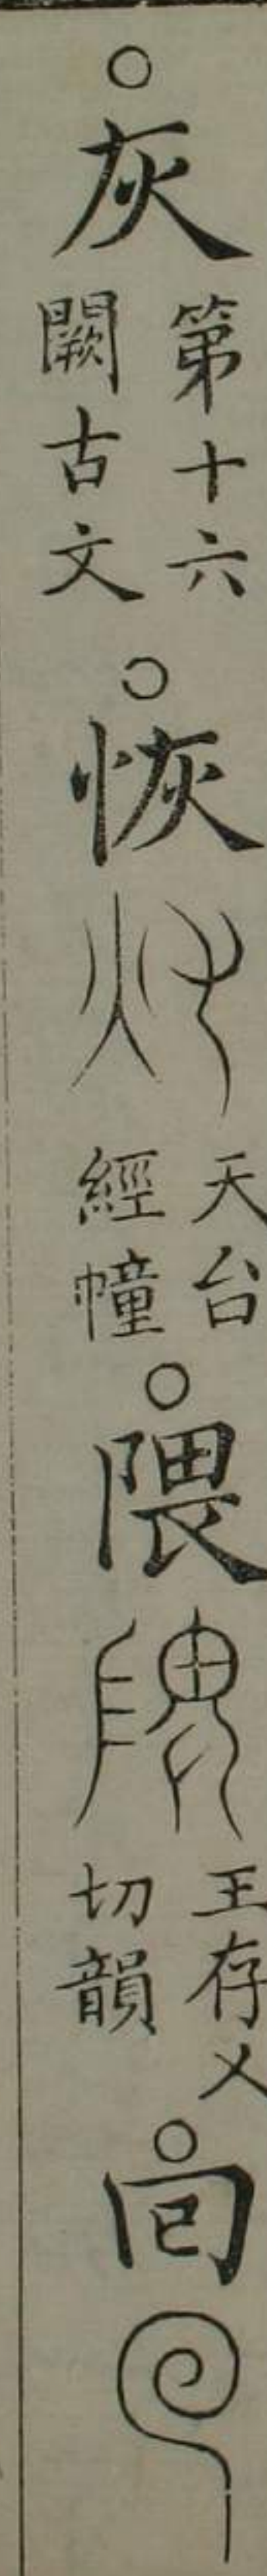 ○灰第十六闕古文○恢天台經幢○隈王存乂切韻○囘